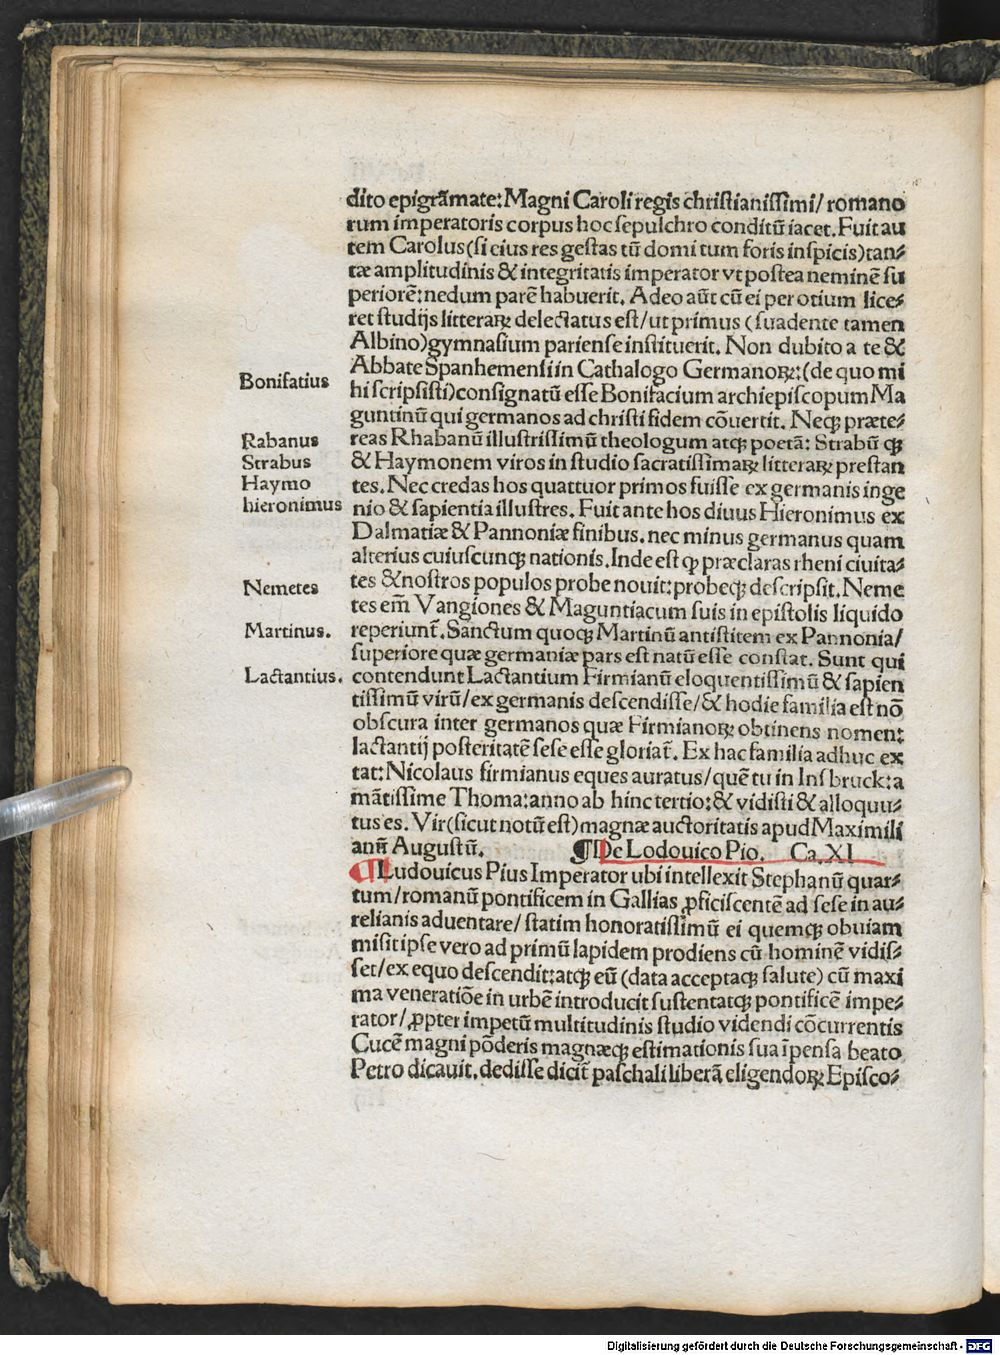 dito epigrãmate: Magni Caroli regis christianissimi/ romano
rum imperatoris corpus hoc sepulchro conditũ iacet. Fuit au
tem Carolus (si eius res gestas tũ domi tum foris inspicis) tan⸗
tæ amplitudinis & integritatis imperator vt postea neminẽ su
periorẽ: nedum parẽ habuerit. Adeo aũt cũ ei per otium lice⸗
ret studijs litteraꝝ delectatus est/ ut primus (suadente tamen
Albino) gymnasium pariense instituerit. Non dubito a te &
Abbate Spanhemensi in Cathalogo Germanoꝝ: (de quo mi
Bonifatius
hi scripsisti) consignatũ esse Bonifacium archiepiscopum Ma
guntinũ qui germanos ad christi fidem cõuertit. Neqꝫ præte⸗
Rabanus
reas Rhabanũ illustrissimũ theologum atqꝫ poetã: Strabũ qꝫ
Strabus
& Haymonem viros in studio sacratissimaꝝ litteraꝝ prestan
Haymo
tes. Nec credas hos quattuor primos fuisse ex germanis inge
hieronimus
nio & sapientia illustres. Fuit ante hos diuus Hieronimus ex
Dalmatiæ & Pannoniæ finibus. nec minus germanus quam
alterius cuiuscunqꝫ nationis. Inde est ꝙ præclaras rheni ciuita⸗
Nemetes
tes & nostros populos probe nouit: probeqꝫ descripsit. Neme
tes em̃ Vangiones & Maguntiacum suis in epistolis liquido
Martinus.
reperiunt̃. Sanctum quoqꝫ Martinũ antistitem ex Pannonia/
superiore quæ germaniæ pars est natũ esse constat. Sunt qui
Lactantius.
contendunt Lactantium Firmianũ eloquentissimũ & sapien
tissimũ virũ/ ex germanis descendisse/ & hodie familia est nõ
obscura inter germanos quæ Firmianoꝝ obtinens nomen:
lactantij posteritatẽ sese esse gloriat̃. Ex hac familia adhuc ex
tat: Nicolaus firmianus eques auratus/ quẽ tu in Insbruck: a
mãtissime Thoma: anno ab hinc tertio: & vidisti & alloquu⸗
tus es. Vir (sicut notũ est) magnæ auctoritatis apud Maximili
anũ Augustũ. ¶De Lodouico Pio. Ca. XI
¶Ludouicus Pius Imperator ubi intellexit Stephanũ quar⸗
tum/ romanũ pontificem in Gallias ꝓficiscentẽ ad sese in au⸗
relianis aduentare/ statim honoratissimũ ei quemqꝫ obuiam
misit ipse vero ad primũ lapidem prodiens cũ hominẽ vidis⸗
set/ ex equo descendit: atqꝫ eũ (data acceptaqꝫ salute) cũ maxi
ma veneratiõe in urbẽ introducit sustentatqꝫ pontificẽ impe⸗
rator/ ꝓpter impetũ multitudinis studio videndi cõcurrentis
Crucẽ magni põderis magnæqꝫ estimationis sua ĩpensa beato
Petro dicauit. dedisse dicit̃ paschali liberã eligendoꝝ Episco⸗
Digitalisierung gefördert durch die Deutsche Forschungsgemeinschaft - DFG